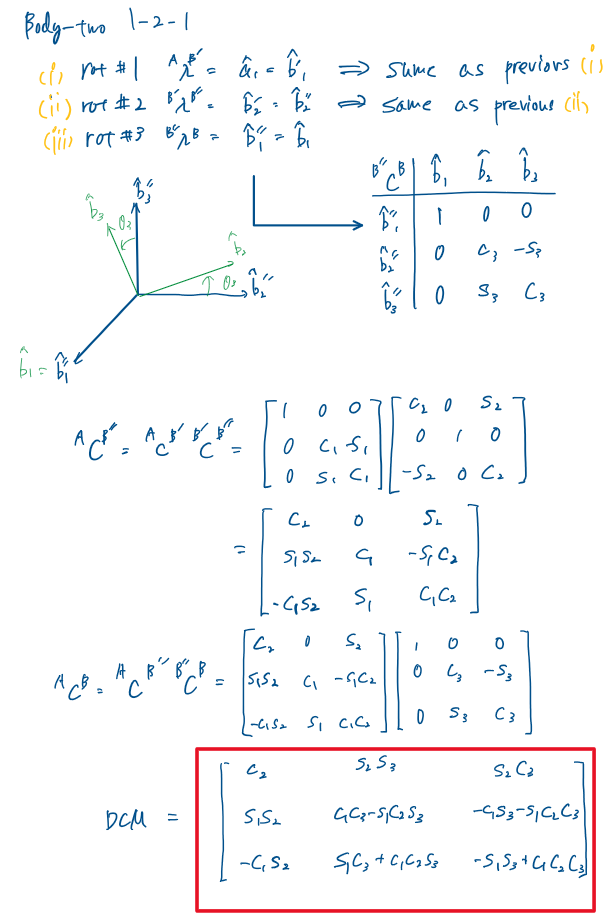 Body-two 1-2-1
(i) rot #1 ᴬλᴮ′ = â₁ = b̂′₁ ⇒ same as previous (i)
(ii) rot #2 ᴮ′λᴮ″ = b̂₂′ = b̂₂″ ⇒ same as previous (ii)
(iii) rot #3 ᴮ″λᴮ = b̂₁″ = b̂₁
ᴮ″Cᴮ | b̂₁ b̂₂ b̂₃
b̂₁″ | 1 0 0
b̂₂″ | 0 C₃ -S₃
b̂₃″ | 0 S₃ C₃
b̂₃″
b̂₃ θ₃
b̂₂
θ₃ b̂₂″
b̂₁ = b̂₁″
ᴬCᴮ″ = ᴬCᴮ′ ᴮ′Cᴮ″ = [1 0 0; 0 C₁ -S₁; 0 S₁ C₁] [C₂ 0 S₂; 0 1 0; -S₂ 0 C₂]
= [C₂ 0 S₂; S₁S₂ C₁ -S₁C₂; -C₁S₂ S₁ C₁C₂]
ᴬCᴮ = ᴬCᴮ″ ᴮ″Cᴮ = [C₂ 0 S₂; S₁S₂ C₁ -S₁C₂; -C₁S₂ S₁ C₁C₂] [1 0 0; 0 C₃ -S₃; 0 S₃ C₃]
DCM = [C₂ S₂S₃ S₂C₃; S₁S₂ C₁C₃-S₁C₂S₃ -C₁S₃-S₁C₂C₃; -C₁S₂ S₁C₃+C₁C₂S₃ -S₁S₃+C₁C₂C₃]